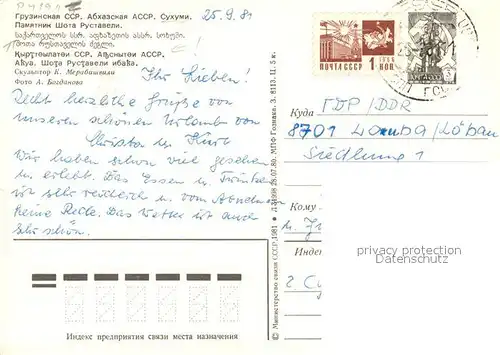 Грузинская ССР. Абхазская АССР. Сухуми.
25.9.81
Памятник Шота Руставели.
საქართველოს სსრ. აფხაზეთის ასსრ. სოხუმი.
შოთა რუსთაველის ძეგლი.
Қырҭтәылатәи ССР. Аԥснытәи АССР.
Аҟəа. Шоҭа Русҭавели ибаҟа.
Скульптор К. Мерабишвили
Фото А. Богданова
Ihr Lieben!
Recht herzliche Grüße von
unserem schönen Urlaub von
Christa u. Kurt
Wir haben schon viel gesehen
u. erlebt. Das Essen u. Trinken
ist sehr reichlich u. vom Abnehmen
keine Rede. Das Wetter ist auch
sehr schön.
Д31998 28.07.80. МПФ Гознака. З. 8113. Ц. 5 к.
© Министерство связи СССР. 1981
ПОЧТА СССР
1 КОП
Куда ГДР/DDR
8701 Lawalde/Löbau
Siedlung 1
Кому
Индекс
privacy protection
samples.com
Индекс предприятия связи места назначения